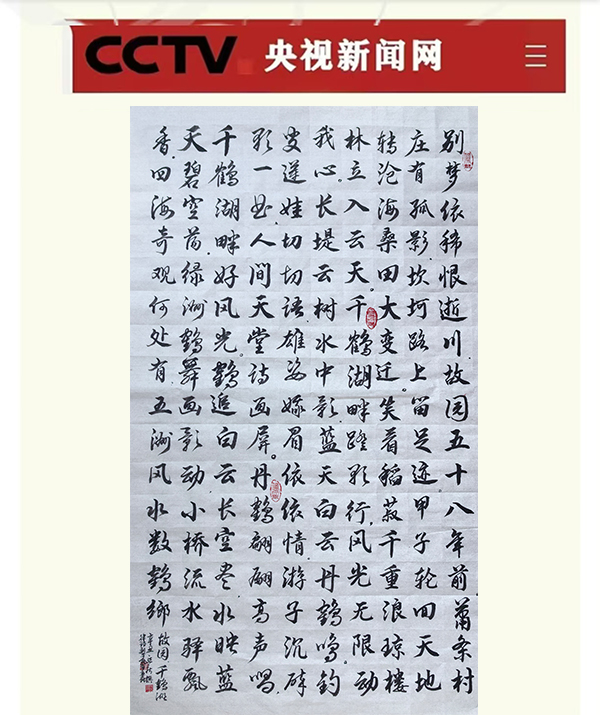 CCTV 央视新闻网
别梦依稀恨逝川故园五十八年前萧条村
庄有孤影坎坷路上留足迹甲子轮回天地
转沧海桑田大变迁。笑看稻菽千重浪琼楼
林立入云天。千鹤湖畔踏歌行。风光无限动
我心。长堤云树水中影蓝天白云丹鹤鸣钓
叟莲娃切切语雄姿眉依依情游子沉醉
歌一曲人间天堂诗画屏。丹鹤翩翩高声唱
千鹤湖畔好风光。鹤追白云长空尽水映蓝
天碧空绿洲鹤舞画影动小桥流水驿飘
香四海奇观何处有五洲风水数鹤鄉
故园千鹤湖